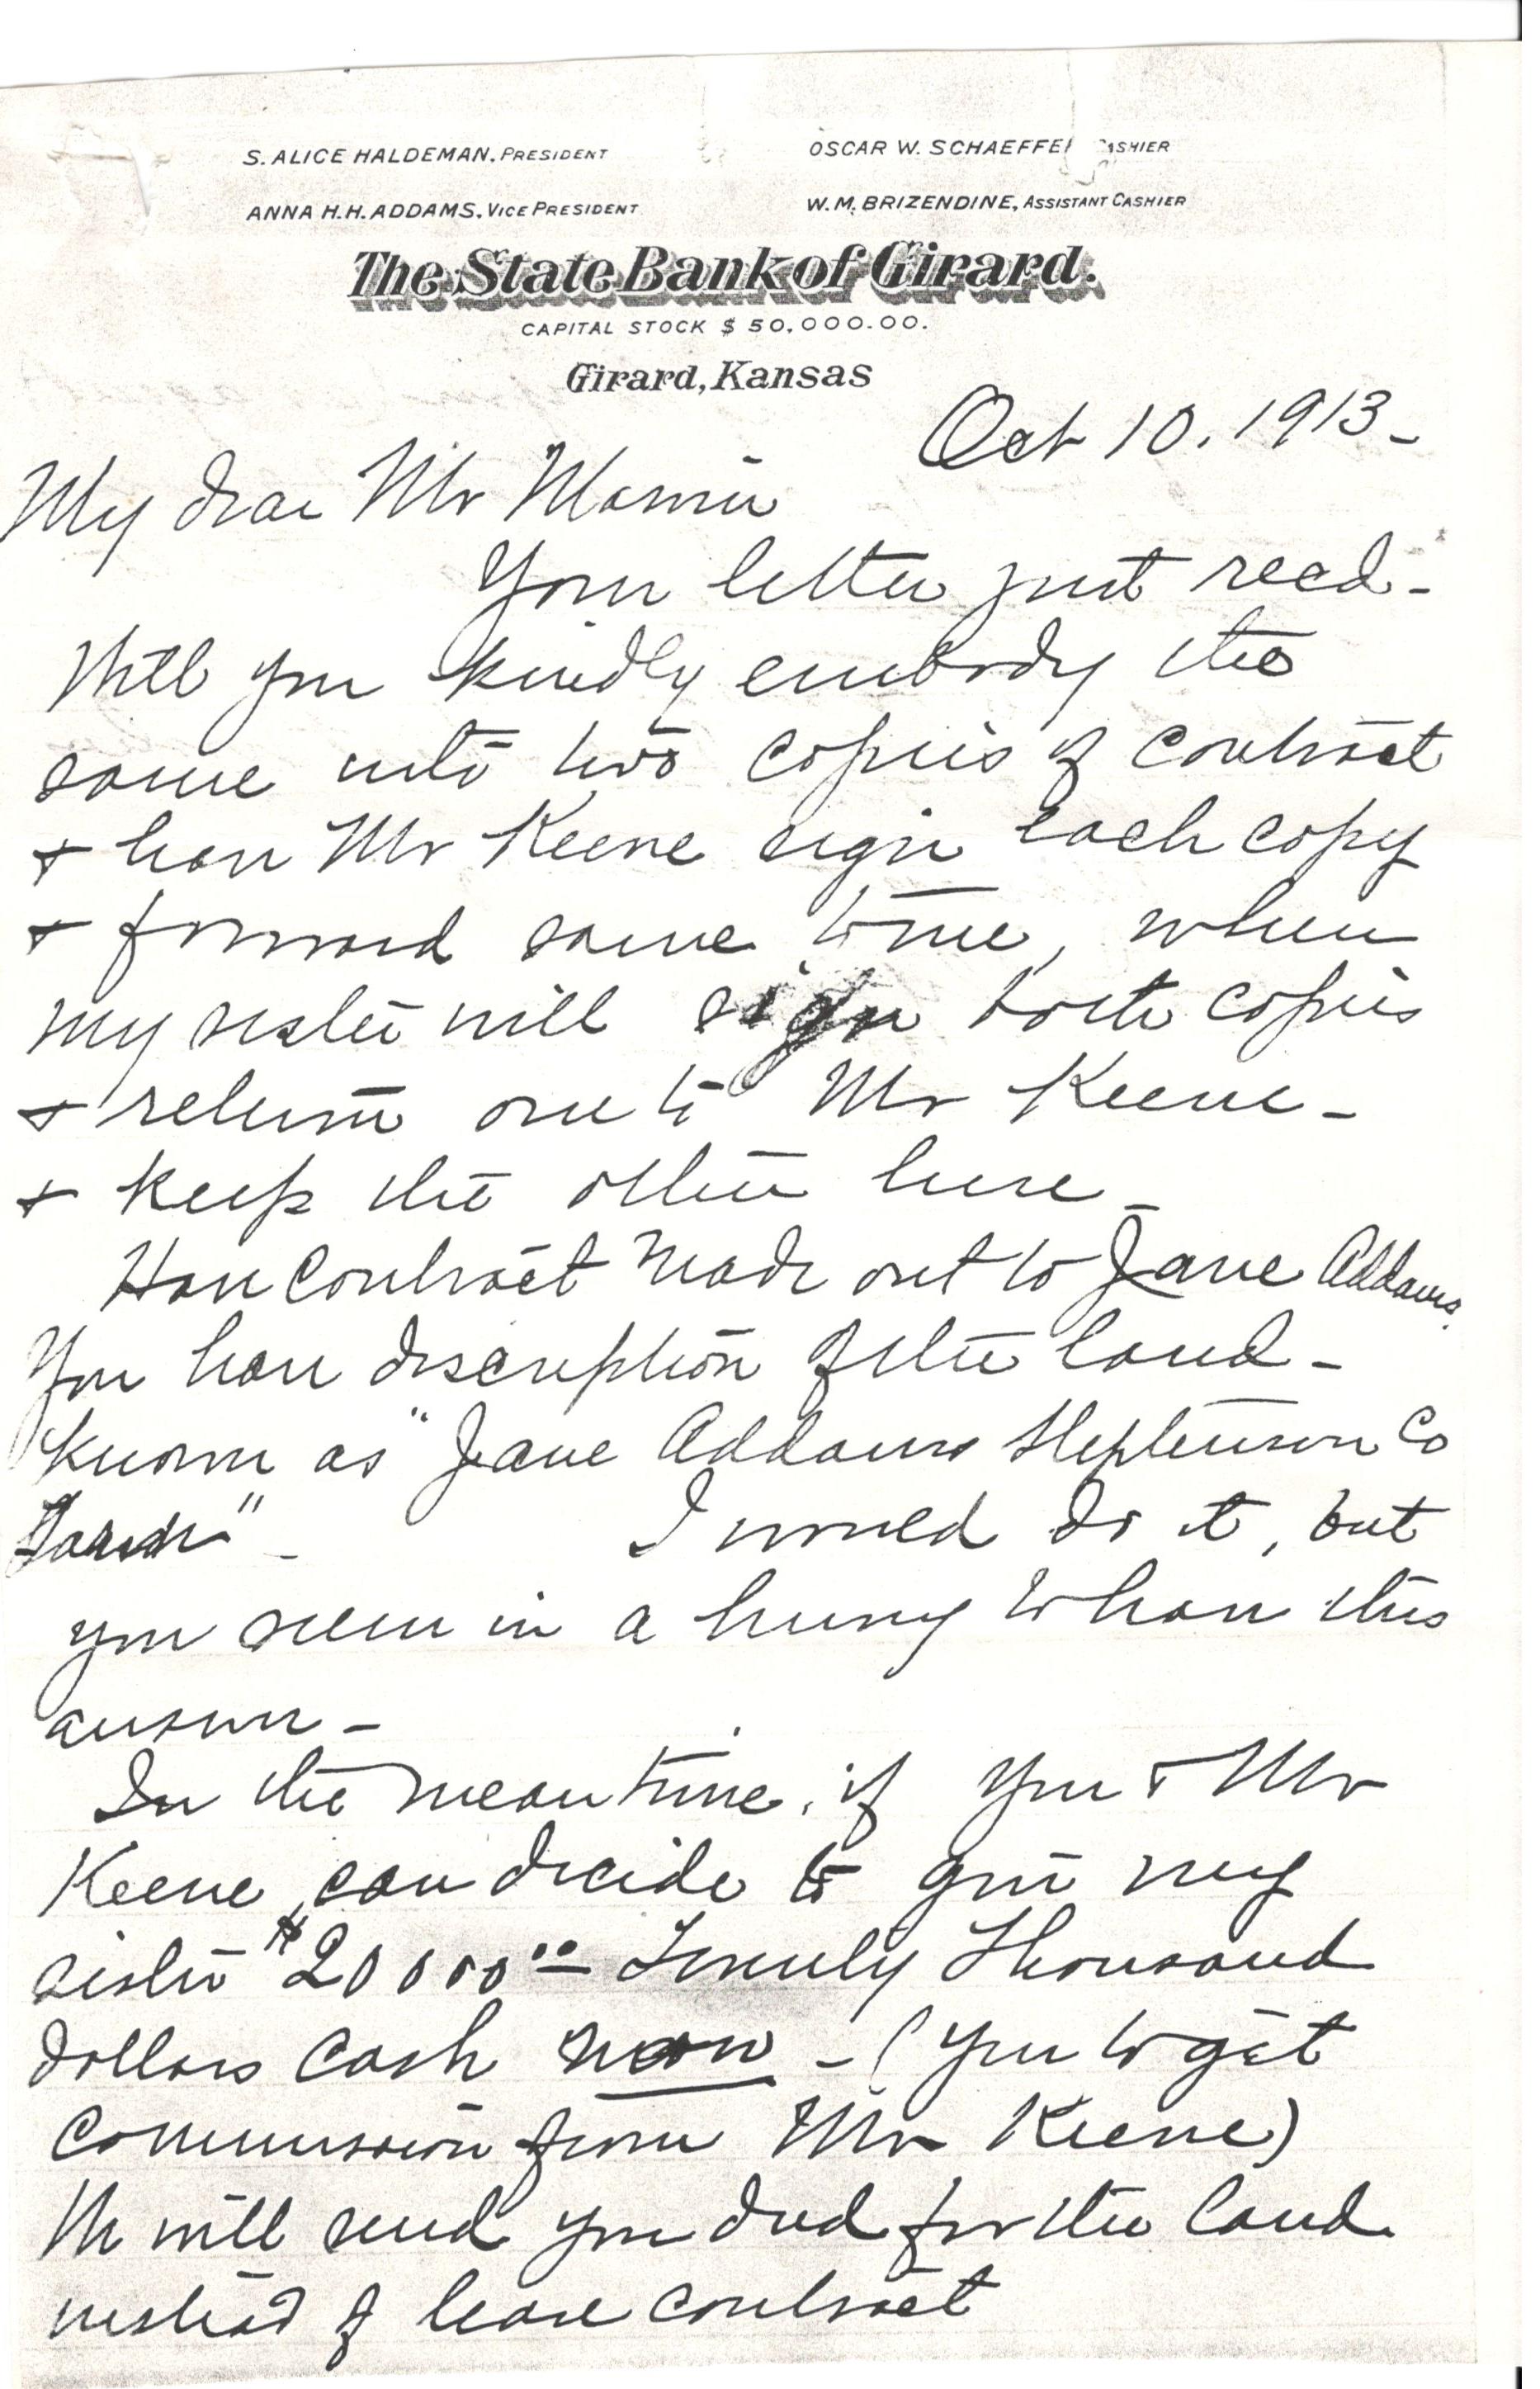 S. ALICE HALDEMAN, PRESIDENT
OSCAR W. SCHAEFFER CASHIER
ANNA H.H. ADDAMS, VICE PRESIDENT
W.M. BRIZENDINE, ASSISTANT CASHIER
The State Bank of Girard.
CAPITAL STOCK $50,000.00.
Girard, Kansas
Oct 10. 1913-
My dear Mr
Your letter just recd-
Will you kindly embody the
same into two copies of contract
+ have Mr Keene sign each copy
+ forward same to me, when
my sister will sign both copies
+ return one to Mr Keene-
+ keep the other here-
Have Contract made out to Jane Addams.
You have description of the land-
known as "Jane Addams Stephenson Co
Farm"- I would do it, but
you seem in a hurry to have this
answer-
In the mean time, if you & Mr
Keene, can decide to give my
sister $20000.00 - Twenty Thousand
dollars cash now - (you to get
commission from Mr Keene)
We will send you deed for the land
instead of lease contract